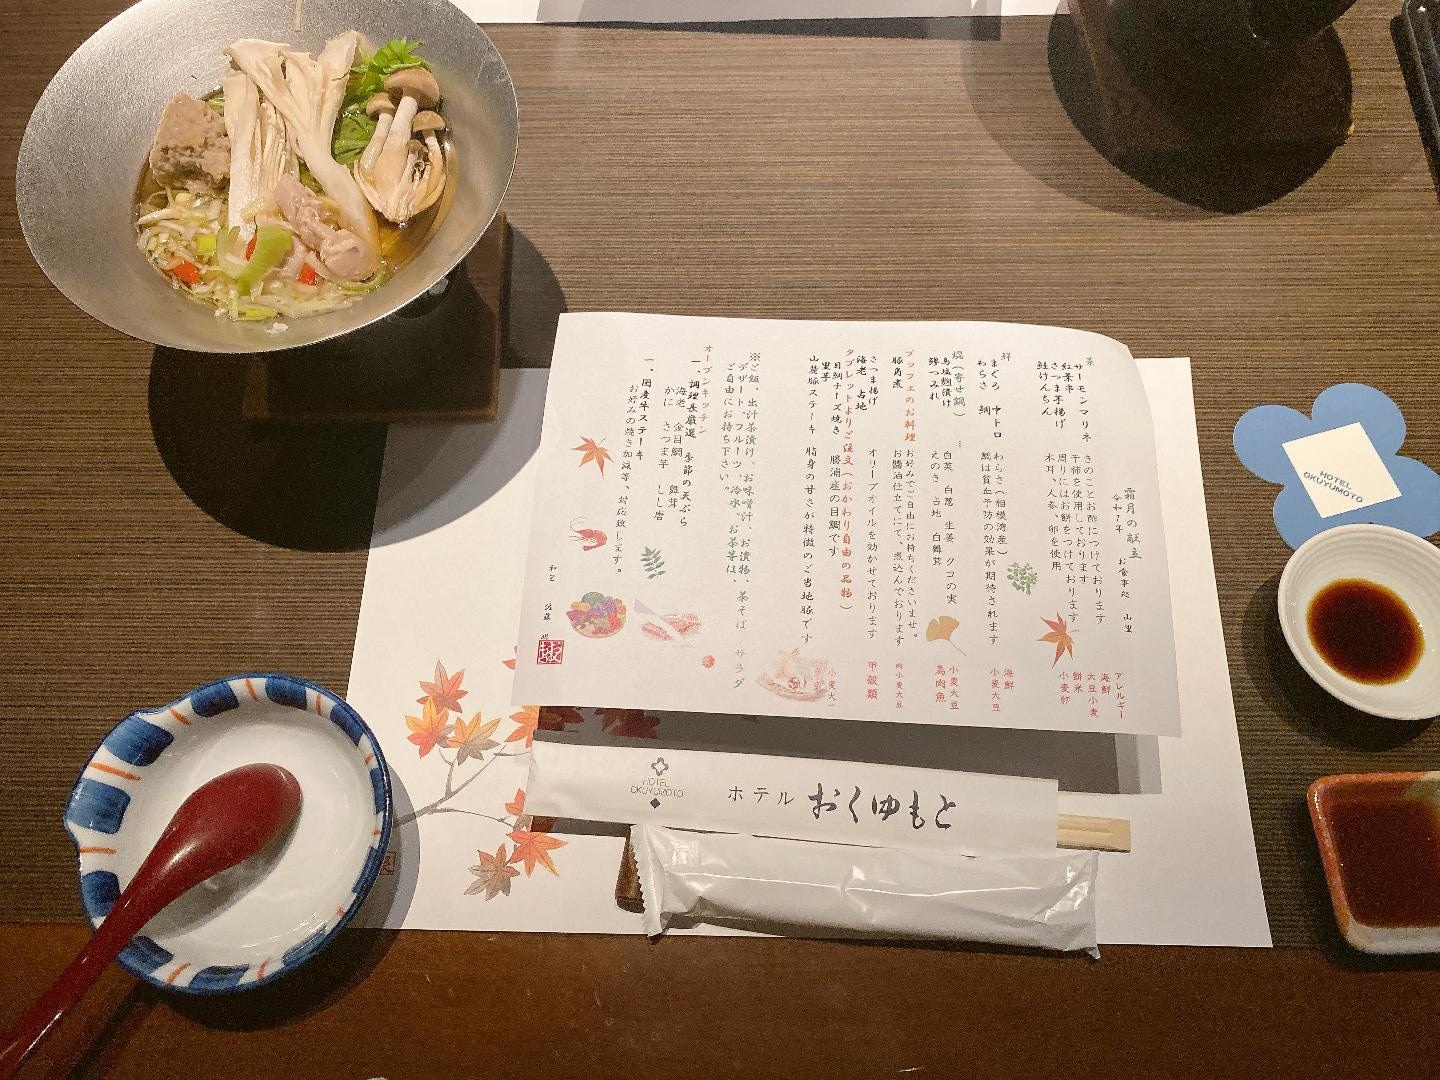 霜月の献立
令和7年 お食事処 山里
アレルギー
菜
サーモンマリネ きのことお酢につけております 海鮮
紅葉串 干柿を使用しております 大豆小麦
さつま芋揚げ 周りにはお餅をつけております 餅米
鮭けんちん 木耳、人参、卵を使用 小麦卵
鮮
まぐろ 中トロ わらさ(相模湾産) 海鮮
わらさ 鯛 鯛は貧血予防の効果が期待されます 小麦大豆
焜(寄せ鍋)…
鳥塩麹漬け 白菜 白葱 生姜 クコの実 小麦大豆
鰯つみれ えのき 占地 白舞茸 鳥肉魚
ブッフェのお料理 お好みでご自由にお持ちくださいませ。
豚角煮 お醤油仕立てにて、煮込んでおります 肉小麦大豆
さつま揚げ
海老 占地 オリーブオイルを効かせております 甲殻類
タブレットよりご注文(おかわり自由の品物)
目鯛チーズ焼き 勝浦産の目鯛です
里芋
山麓豚ステーキ 脂身の甘さが特徴のご当地豚です
※ご飯、出汁茶漬け、お味噌汁、お漬物、茶そば、サラダ
デザート、フルーツ、冷水、お茶等は、
ご自由にお持ち下さい。
オープンキッチン
一、調理長厳選 季節の天ぷら
海老 金目鯛 舞茸
かに さつま芋 しし唐
一、国産牛ステーキ
お好みの焼き加減等、対応致します。
HOTEL
OKUYUMOTO
ホテル おくゆもと
HOTEL
OKUYUMOTO